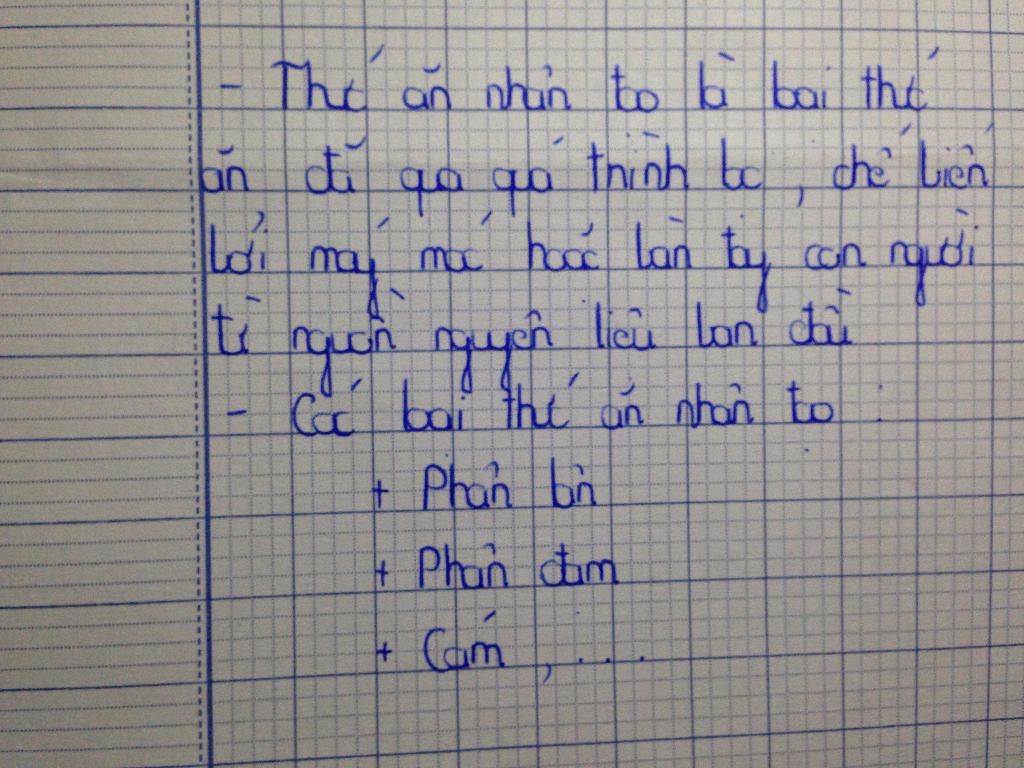 - Thức ăn nhân tạo là loại thức
ăn đã qua quá trình bc, chế biến
bởi máy móc hoặc bàn tay con người
từ nguồn nguyên liệu ban đầu
- Các loại thức ăn nhân tạo :
+ Phân lân
+ Phân đạm
+ Cám , ....